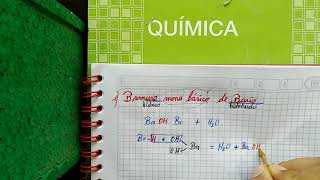 QUÍMICA
f) Bromuro mono básico de Bario
hidrico hidróxido
Ba OH Br + H₂O
Br-H + OH
OH Ba = H₂O + Ba OH